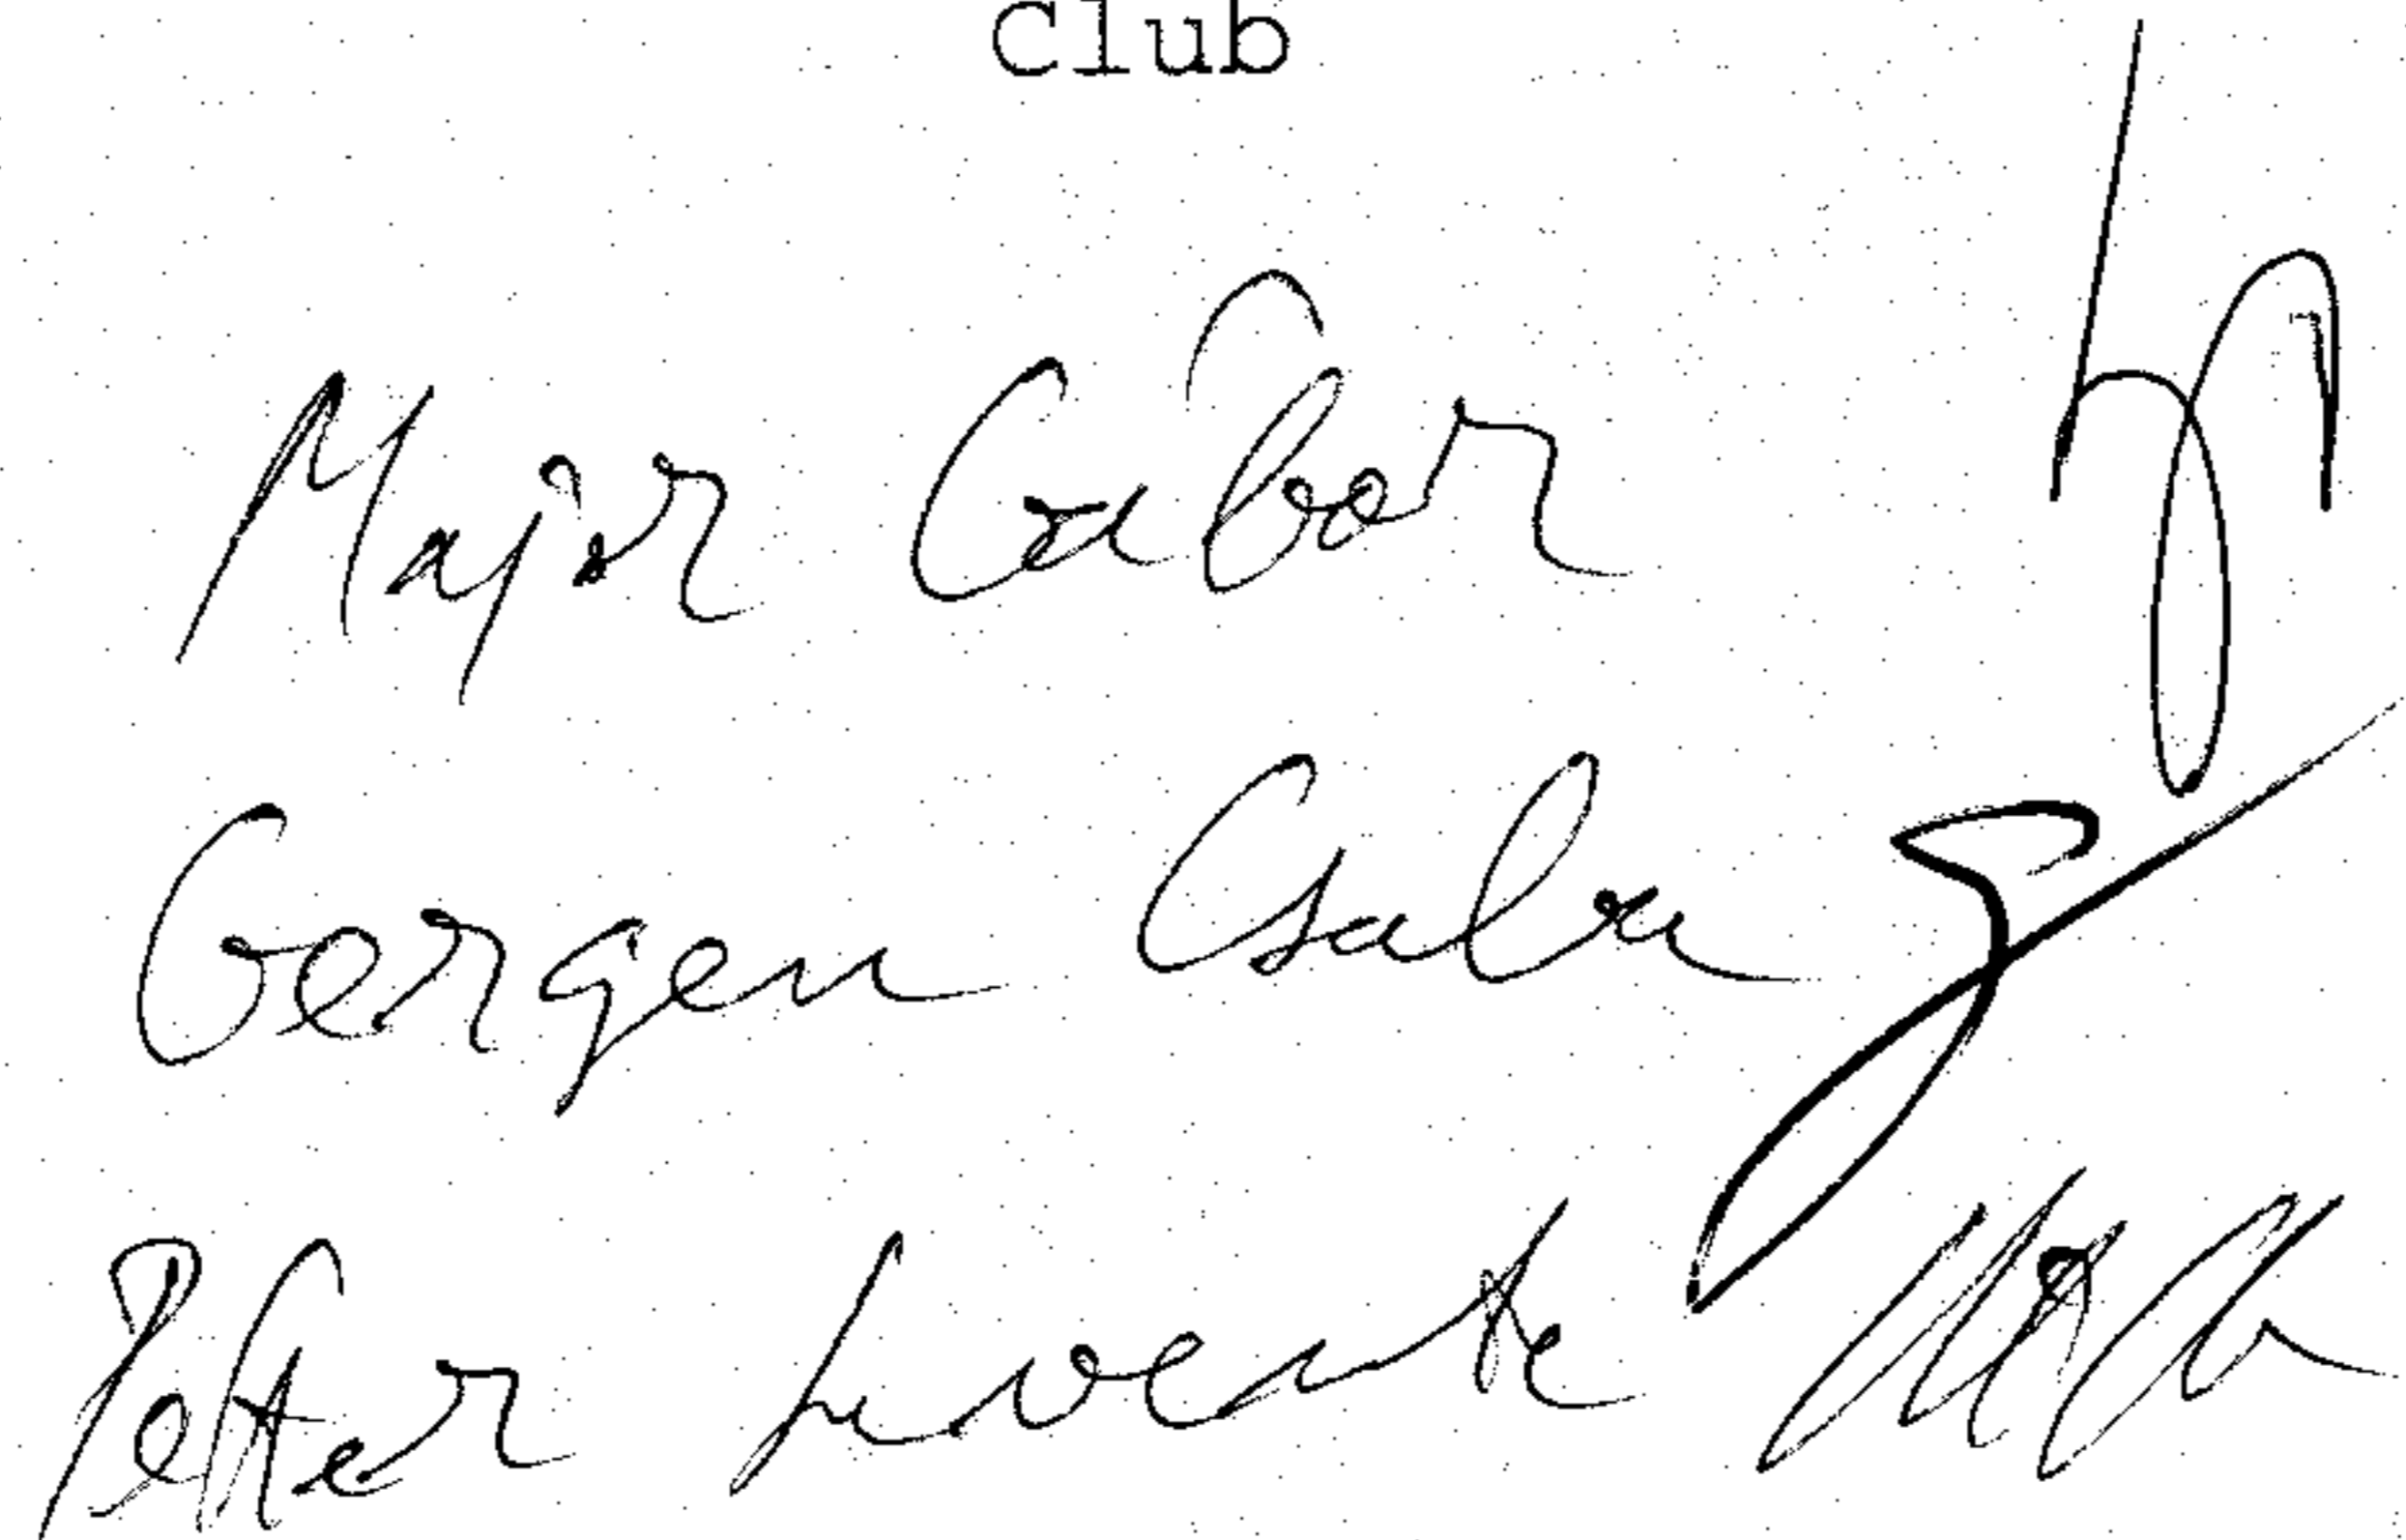 Club
Major Gábor
Gergen Csaba
Petter Levente